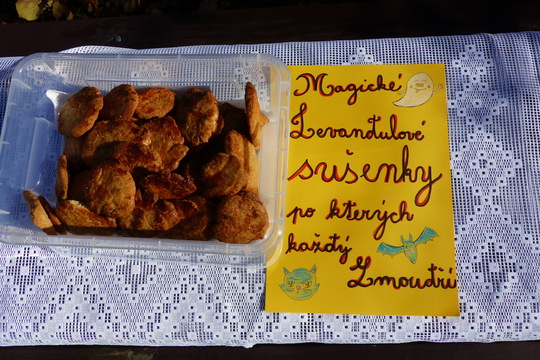 Magické
Levandulové
sušenky
po kterých
každý
Zmoudří